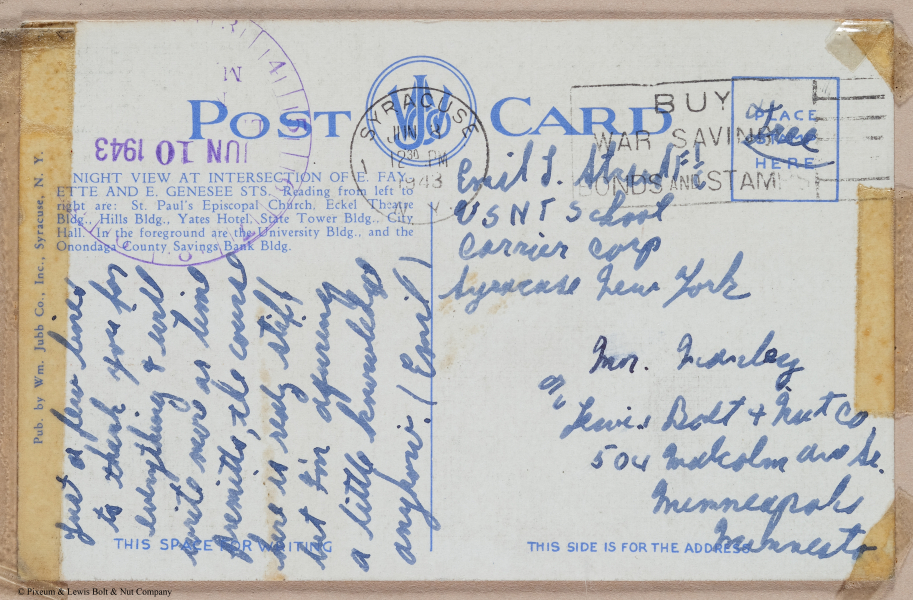 POST CARD
JUN 10 1943
SYRACUSE
JUN 9
12 30 PM
1943
N. Y.
BUY
WAR SAVINGS
BONDS AND STAMPS
PLACE
HERE
Free
NIGHT VIEW AT INTERSECTION OF E. FAY-
ETTE AND E. GENESEE STS. Reading from left to
right are: St. Paul's Episcopal Church, Eckel Theatre
Bldg., Hills Bldg., Yates Hotel, State Tower Bldg., City
Hall. In the foreground are the University Bldg., and the
Onondaga County Savings Bank Bldg.
Pub. by Wm. Jubb Co., Inc., Syracuse, N. Y.
Emil J.
USNT School
Carrier Corp
Syracuse New York
Mr. Manley
Lewis Bolt + Nut Co
504 Malcolm ave Se.
Minneapolis
Minnesota
Just a few lines
to thank you for
everything & will
write more as time
permitts, the course
here is realy stiff
but I'm aquiring
a little knowledge
anyhow. (Emil)
THIS SPACE FOR WRITING
THIS SIDE IS FOR THE ADDRESS
© Pixeum & Lewis Bolt & Nut Company